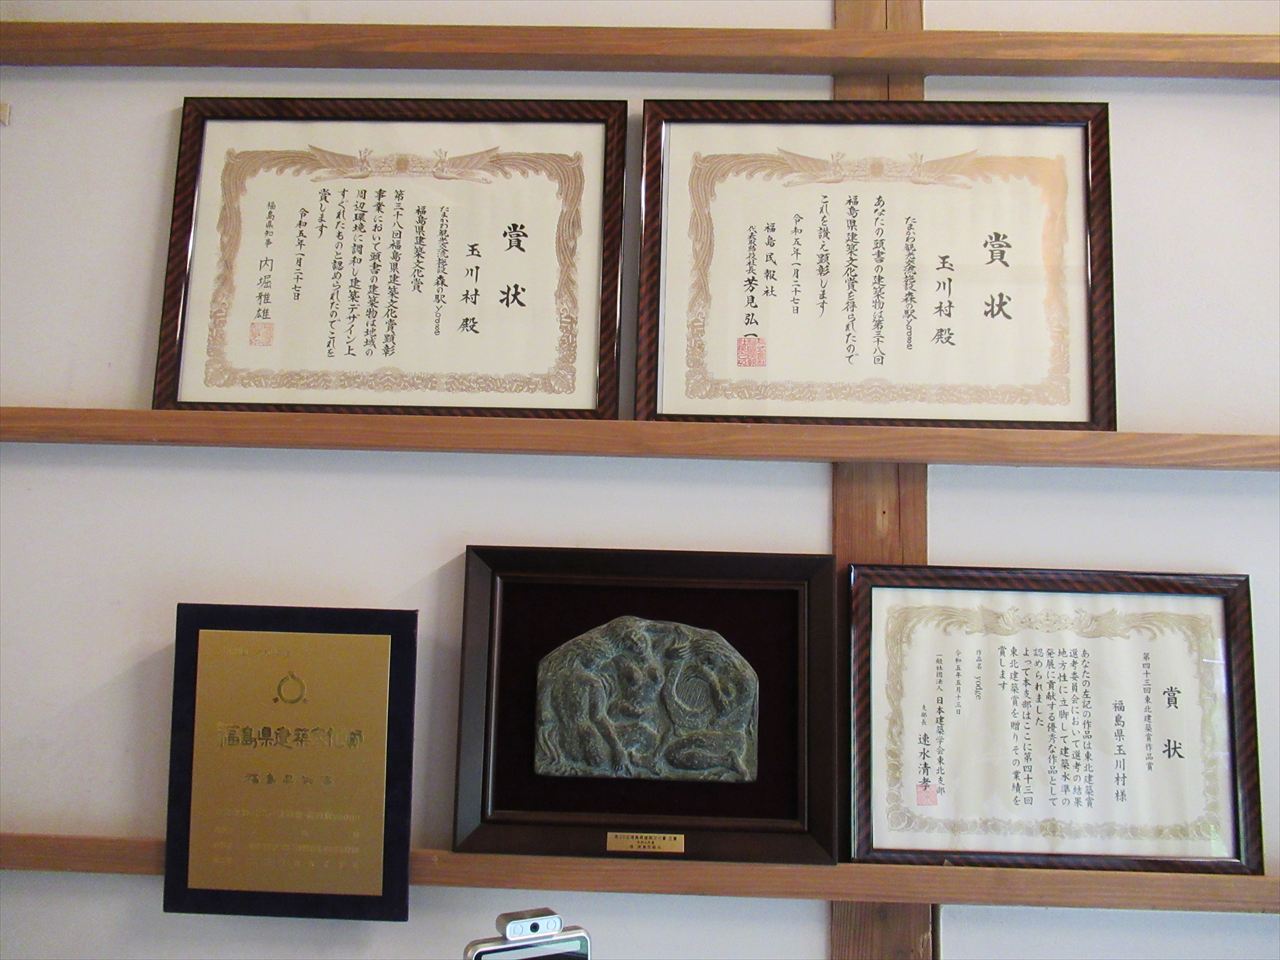 賞状
玉川村 殿
たまかわ観光交流施設 森の駅yodge
福島県建築文化賞
第三十八回福島県建築文化賞顕彰
事業において頭書の建築物は地域の
周辺環境に調和し建築デザイン上
すぐれたものと認められたのでこれを
賞します
令和五年一月二十七日
福島県知事 内堀雅雄
賞状
玉川村 殿
たまかわ観光交流施設森の駅yodge
あなたの頭書の建築物は第三十八回
福島県建築文化賞を得られたので
これを讃え顕彰します
令和五年一月二十七日
福島民報社
代表取締役社長 芳見弘一
福島県建築文化賞
福島県知事
賞状
第四十三回東北建築賞作品賞
福島県玉川村様
あなたの左記の作品は東北建築賞
選考委員会において選考の結果
地方性に立脚して建築水準の
発展に貢献する優秀な作品として
認められました
よって本支部はここに第四十三回
東北建築賞を贈りその業績を
賞します
作品名 yodge
令和五年五月十三日
一般社団法人 日本建築学会東北支部
支部長 速水清孝